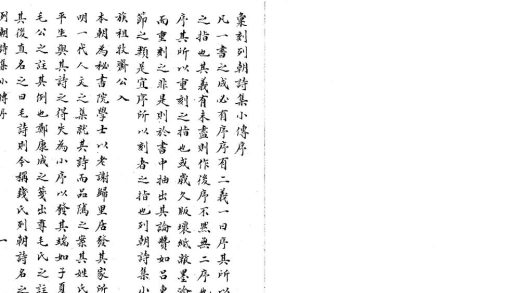 彙刻列朝詩集小傳序
凡一書之成必有序序有二義一曰序其所以
之指也其義有未盡則作後序不然無二序也
序其所以重刻之指也或歲久版壞紙敝墨渝
而重刻之非是則於書中抽出其論贊如呂東
節之類是宜序所以刻者之指也列朝詩集小
族祖牧齋公入
本朝為秘書院學士以老謝歸里居發其家所
明一代人文之集就其詩而品隲之案其姓氏
平生與其詩之得失為小序以發其端如子夏
毛公之註其例也鄭康成之箋出尊毛氏之註
其後直名之曰毛詩則今稱錢氏列朝詩名之
列朝詩集小傳序 一